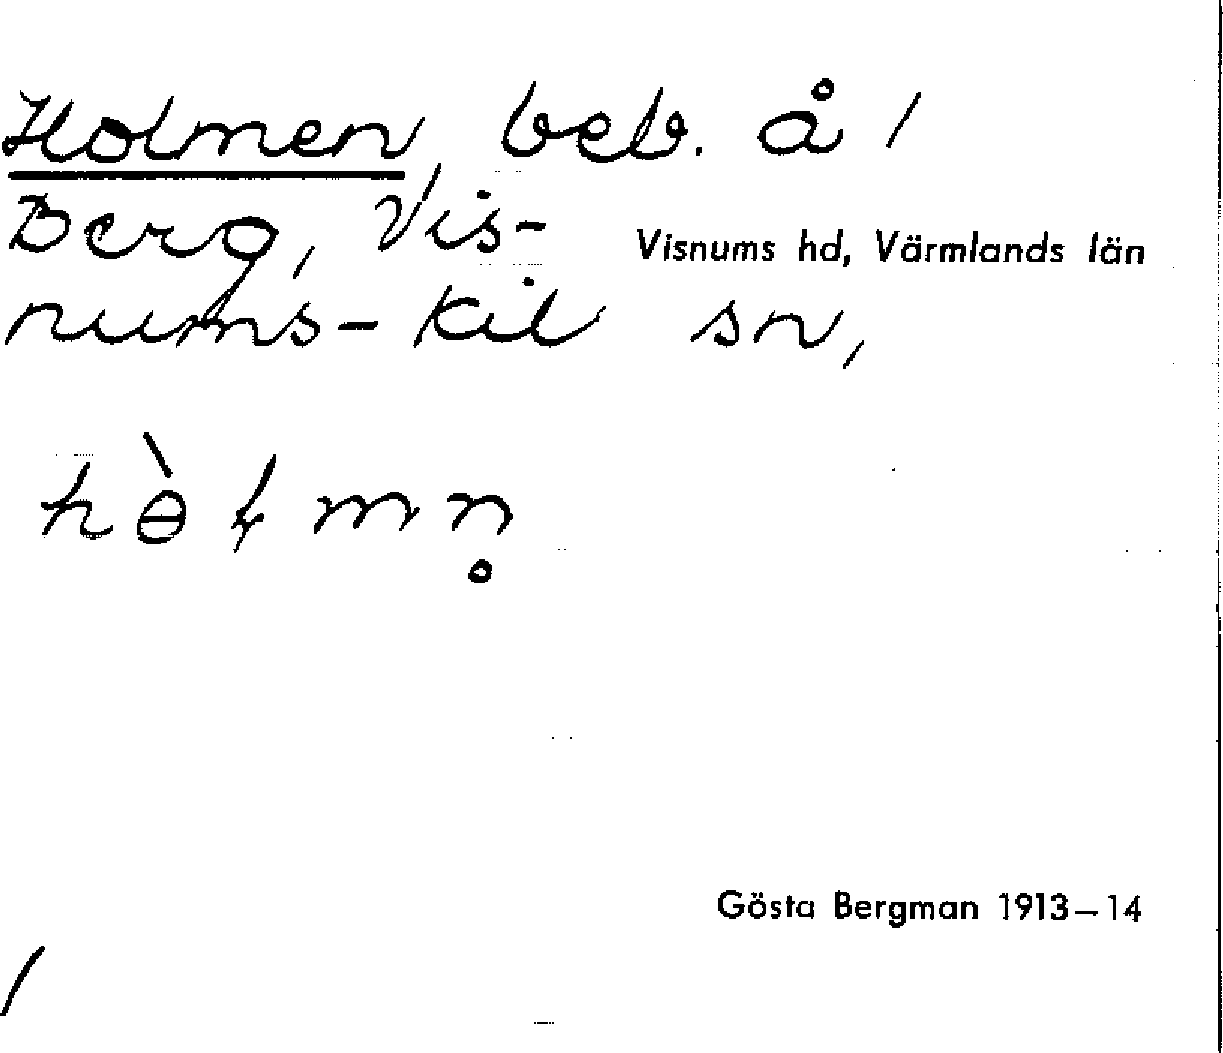 Holmen, beb. å 1
Berg, Vis-
nums-kil sn,
Visnums hd, Värmlands län
hɵ̀ɫmn̥
Gösta Bergman 1913–14
/